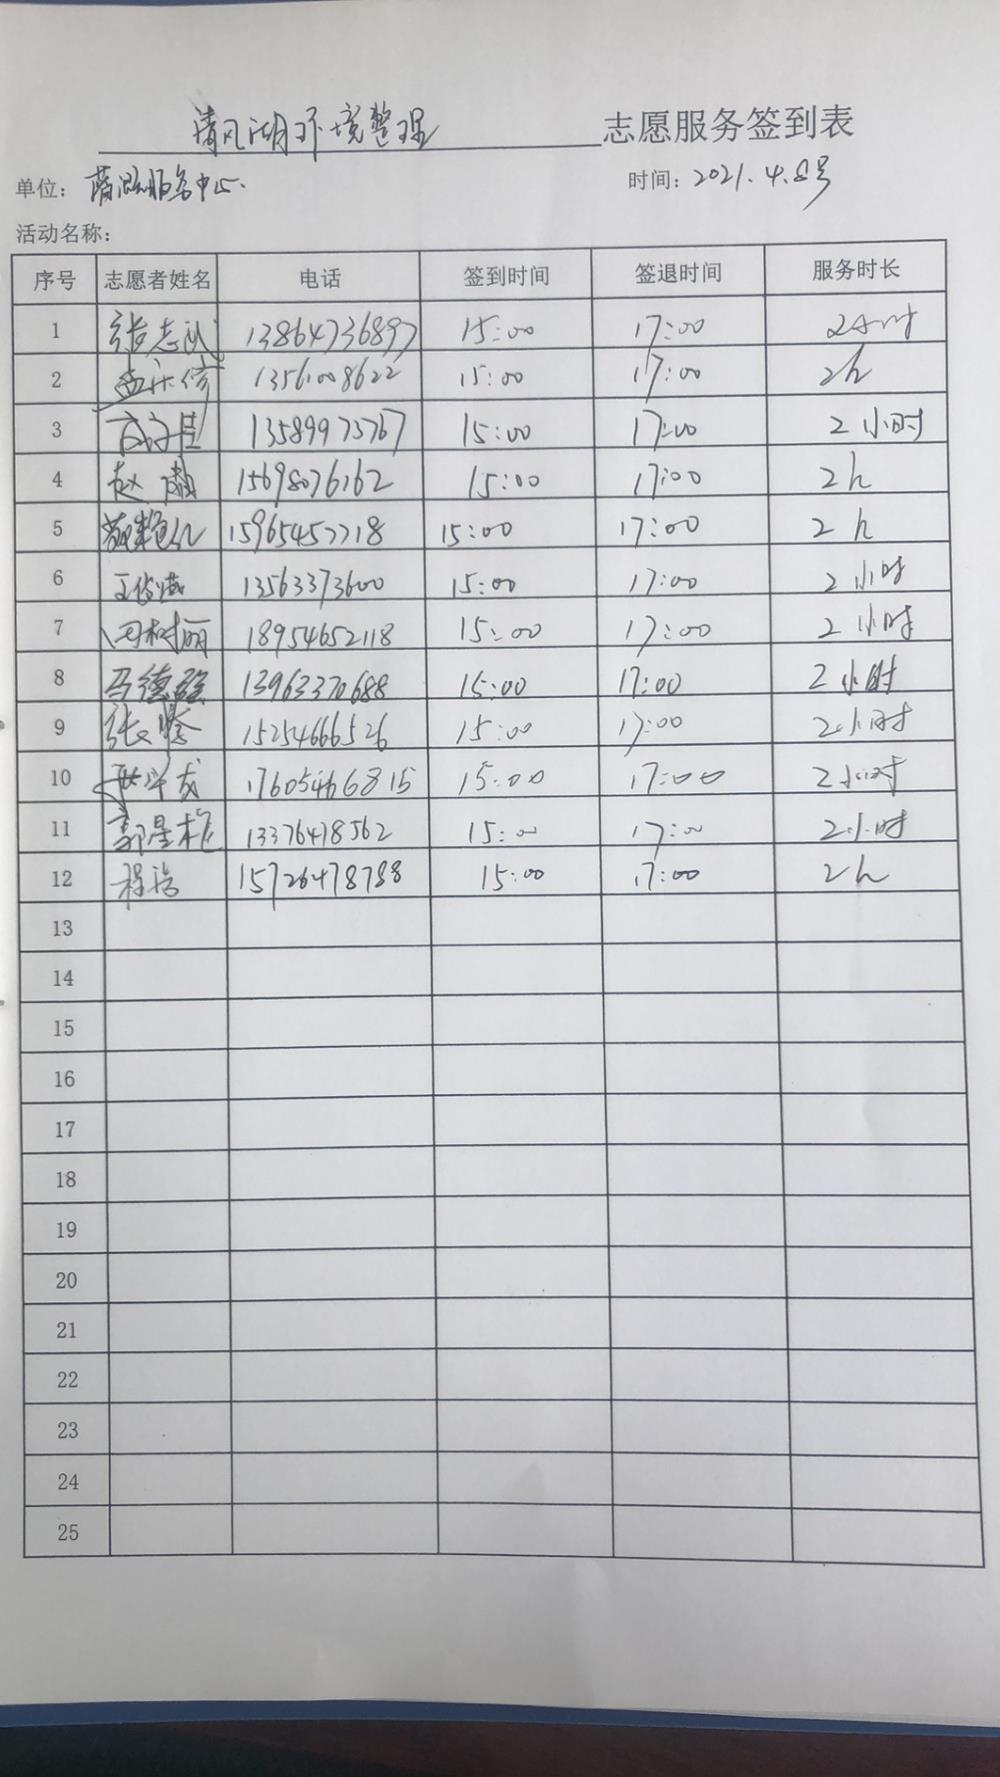 清风湖环境整理 志愿服务签到表
单位: 服务中心. 时间: 2021.4.8号
活动名称:
序号 志愿者姓名 电话 签到时间 签退时间 服务时长
1 张志武 13864736897 15:00 17:00 2小时
2 13561008622 15:00 17:00 2h
3 13589973767 15:00 17:00 2小时
4 赵 15698076162 15:00 17:00 2h
5 15965457718 15:00 17:00 2h
6 王俊 13563373600 15:00 17:00 2小时
7 田树丽 18954652118 15:00 17:00 2小时
8 马德强 13963370688 15:00 17:00 2小时
9 张 15254666526 15:00 17:00 2小时
10 17605466815 15:00 17:00 2小时
11 郭星 13376478562 15:00 17:00 2小时
12 程 15726478788 15:00 17:00 2h
13
14
15
16
17
18
19
20
21
22
23
24
25